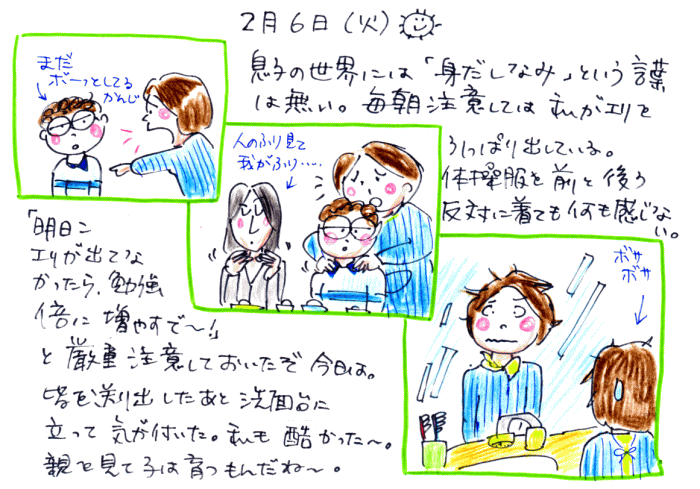 2月6日(火)
まだ
ボーッとしてる
かんじ
息子の世界には「身だしなみ」という言葉
は無い。毎朝注意しては私がエリを
ひっぱり出している。
体操服を前と後ろ
反対に着ても何も感じな
い。
人のふり見て
我がふり・・・・
「明日こ
エリが出てな
かったら、勉強
倍に増やすで〜!」
と厳重注意しておいたぞ今日は。
皆を送り出したあと洗面台に
立って気が付いた。私も酷かった〜。
親を見て子は育つもんだね〜。
ボサ
ボサ